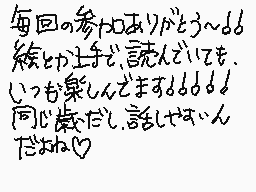 毎回の参加ありがとう〜♪♪
絵とか上手で、読んでいても、
いつも楽しんでます♪♪♪♪♪
同じ歳だし、話しやすいん
だよね♡